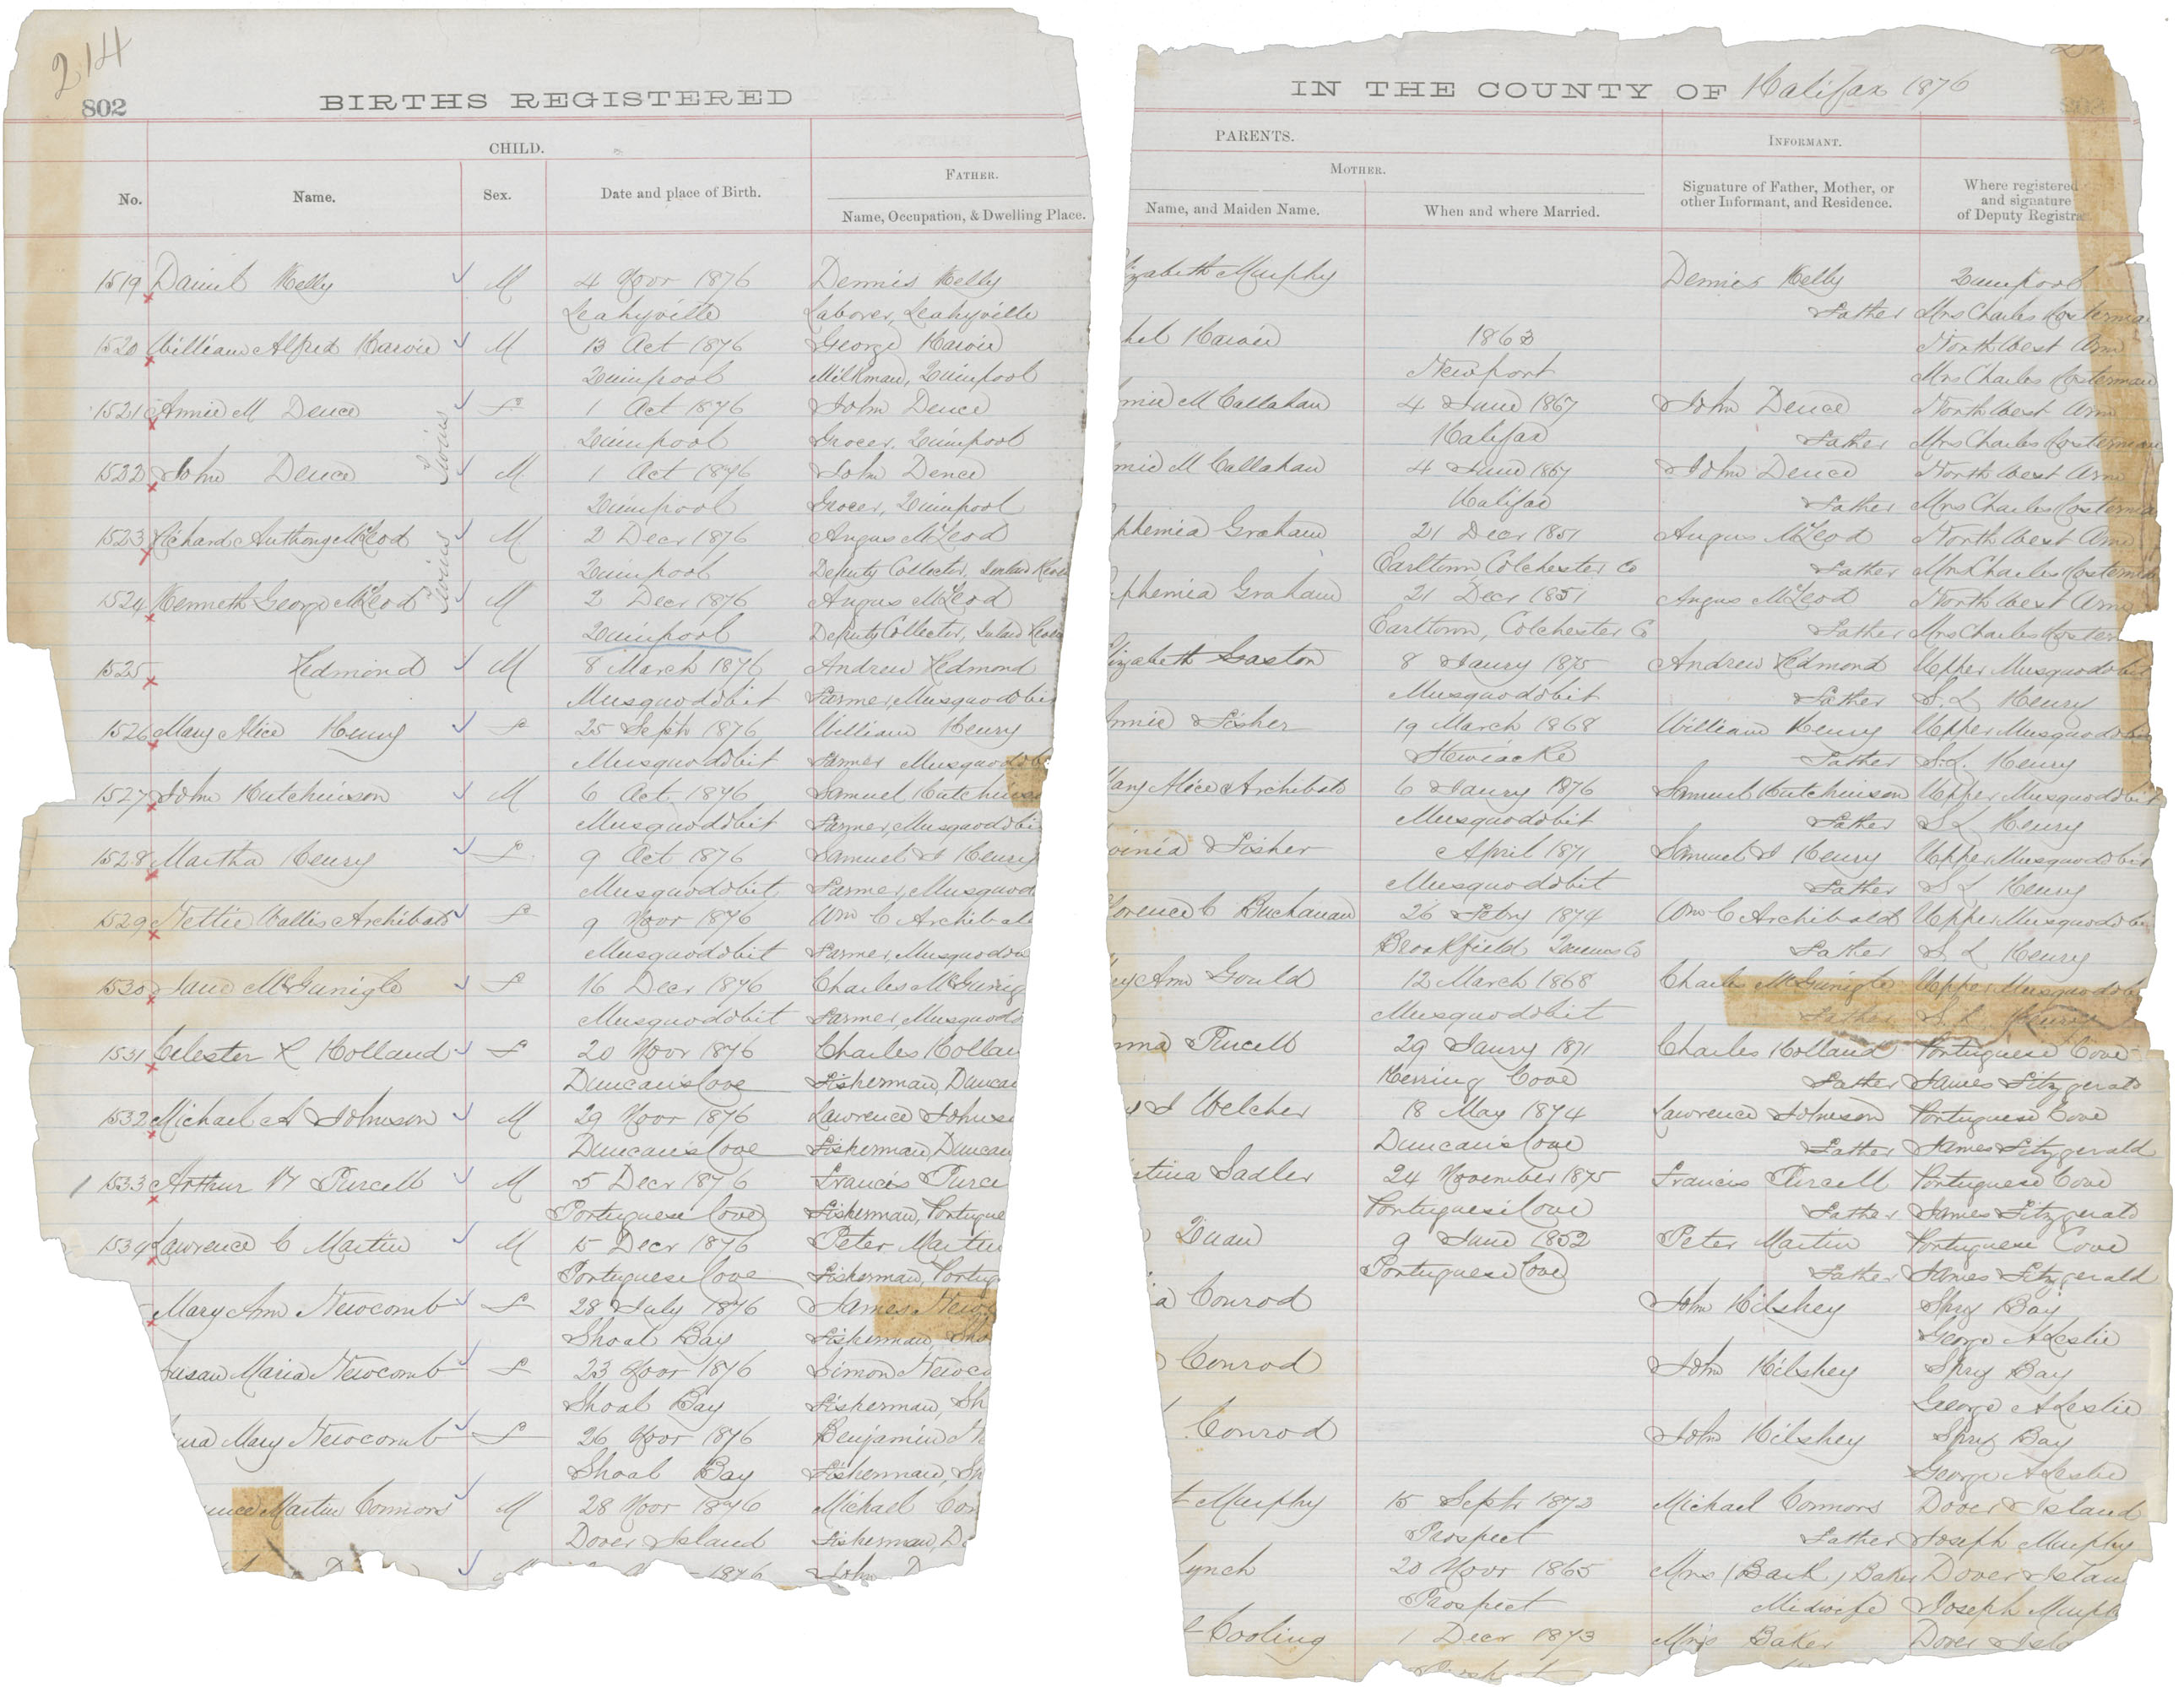 214
802
BIRTHS REGISTERED
CHILD.
FATHER.
No.
Name.
Sex.
Date and place of Birth.
Name, Occupation, & Dwelling Place.
1519 Daniel Kelly M 4 Novr 1876 Dennis Kelly
Leahyville Laborer, Leahyville
1520 William Alfred Harvie M 13 Oct 1876 George Harvie
Quinpool Milkman, Quinpool
1521 Annie M Deuce F 1 Oct 1876 John Deuce
Twins
Quinpool Grocer, Quinpool
1522 John Deuce M 1 Oct 1876 John Deuce
Quinpool Grocer, Quinpool
1523 Richard Anthony McLeod M 2 Decr 1876 Angus McLeod
Twins
Quinpool Deputy Collector, Inland
1524 Kenneth George McLeod M 2 Decr 1876 Angus McLeod
Quinpool Deputy Collector, Inland
1525 Redmond M 8 March 1876 Andrew Redmond
Musquodobit Farmer, Musquodobit
1526 Mary Alice Henry F 25 Septr 1876 William Henry
Musquodobit Farmer Musquodob
1527 John Hutchinson M 6 Oct 1876 Samuel Hutchinson
Musquodobit Farmer, Musquodobi
1528 Martha Henry F 9 Oct 1876 Samuel J Henry
Musquodobit Farmer, Musquod
1529 Nettie Wallis Archibald F 9 Novr 1876 Wm C Archibald
Musquodobit Farmer, Musquodo
1530 Jane McGunigle F 16 Decr 1876 Charles McGunig
Musquodobit Farmer, Musquodo
1531 Celester R Holland F 20 Novr 1876 Charles Hollan
Duncan's Cove Fisherman, Duncan
1532 Michael A Johnson M 29 Novr 1876 Lawrence Johns
Duncan's Cove Fisherman, Duncan
1533 Arthur W Purcell M 5 Decr 1876 Francis Purce
Portuguese Cove Fisherman, Portugue
1534 Lawrence C Martin M 15 Decr 1876 Peter Martin
Portuguese Cove Fisherman, Portug
Mary Ann Newcomb F 28 July 1876 James Newc
Shoal Bay Fisherman, Sho
usan Maria Newcomb F 23 Novr 1876 Simon Newco
Shoal Bay Fisherman, Sh
Mary Newcomb F 26 Novr 1876 Benjamin N
Shoal Bay Fisherman, Sh
ence Martin Connors M 28 Novr 1876 Michael Con
Dover Island Fisherman, D
1876 John D
IN THE COUNTY OF Halifax 1876
802
PARENTS.
INFORMANT.
MOTHER.
Name, and Maiden Name.
When and where Married.
Signature of Father, Mother, or
other Informant, and Residence.
Where registered
and signature
of Deputy Registra
lizabeth Murphy Dennis Kelly Quinpool
Father Mrs Charles Kosterman
hel Harvie 1863 North West Arm
Newport Mrs Charles Kosterman
nnie McCallahan 4 June 1867 John Deuce North West Arm
Halifax Father Mrs Charles Kosterman
nnie McCallahan 4 June 1867 John Deuce North West Arm
Halifax Father Mrs Charles Kosterma
phemia Graham 21 Decr 1851 Angus McLeod North West Arm
Earltown, Colchester Co Father Mrs Charles Kosterma
phemia Graham 21 Decr 1851 Angus McLeod North West Arm
Earltown, Colchester Co Father Mrs Charles Koster
lizabeth Gaston 8 Jany 1875 Andrew Redmond Upper Musquodobit
Musquodobit Father S. L Henry
Annie Fisher 19 March 1868 William Henry Upper Musquodob
Stewiacke Father S. L. Henry
Mary Alice Archibald 6 Jany 1876 Samuel Hutchinson Upper Musquodobit
Musquodobit Father S L Henry
vinia Fisher April 1871 Samuel J Henry Upper Musquodobit
Musquodobit Father S L Henry
lorence C Buchanan 26 Feby 1874 Wm C Archibald Upper Musquodobi
Brookfield Queens Co Father S L Henry
cy Ann Gould 12 March 1868 Charles McGunigle Upper Musquodob
Musquodobit Father S. L Henry
nna Purcell 29 Jany 1871 Charles Holland Portuguese Cove
Herring Cove Father James Fitzgerald
J Welcher 18 May 1874 Lawrence Johnson Portuguese Cove
Duncan's Cove Father James Fitzgerald
stina Sadler 24 November 1875 Francis Purcell Portuguese Cove
Portuguese Cove Father James Fitzgerald
Quan 9 June 1852 Peter Martin Portuguese Cove
Portuguese Cove Father James Fitzgerald
a Conrod John Hilshey Spry Bay
George A Leslie
Conrod John Hilshey Spry Bay
George A Leslie
Conrod John Hilshey Spry Bay
George A Leslie
t Murphy 15 Septr 1872 Michael Connors Dover Island
Prospect Father Joseph Murphy
ynch 20 Novr 1865 Mrs (Bark) Baker Dover Islan
Prospect Midwife Joseph Murph
Cooling 1 Decr 1873 Mrs Baker Dover Isla